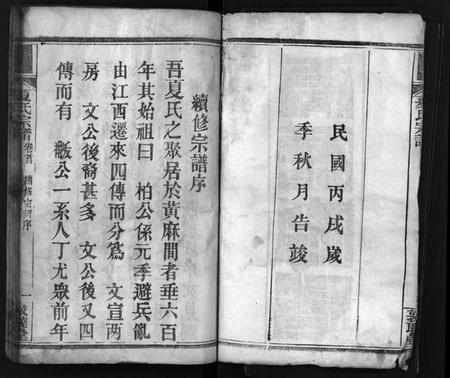 民國丙戌歲
季秋月告竣
續修宗譜序
吾夏氏之聚居於黃麻間者垂六百
年其始祖曰 柏公係元季避兵亂
由江西遷來四傳而分為 文宣兩
房 文公後裔甚多 文公後又四
傳而有 敝公一系人丁尤眾前年
夏氏宗譜 卷首 續修宗譜序 一